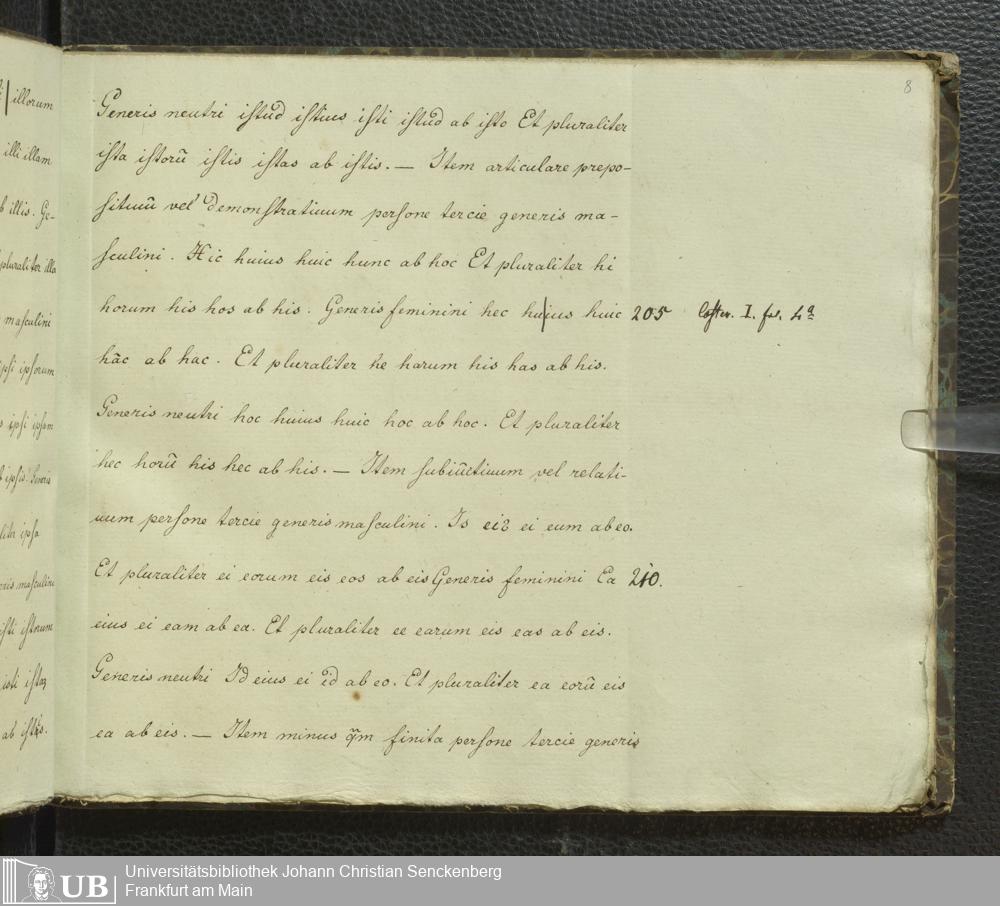 illorum
illi illam
b illis. Ge-
pluraliter illa
masculini
ipsi ipsorum
s ipsi ipsam
b ipsis. Generis
ipsa
masculini
isti istorum
isti istas
ab istis.
8
Generis neutri istud istius isti istud ab isto Et pluraliter
ista istorū istis istas ab istis. — Item articulare prepo-
situuū vel demonstratiuum persone tercie generis ma-
sculini. Hic huius huic hunc ab hoc Et pluraliter hi
horum his hos ab his. Generis feminini hec hu|ius huic 205 Coster. I. fol. 4ª
hāc ab hac. Et pluraliter he harum his has ab his.
Generis neutri hoc huius huic hoc ab hoc. Et pluraliter
hec horū his hec ab his. — Item subiūctiuum vel relati-
uum persone tercie generis masculini. Is ei⁹ ei eum ab eo.
Et pluraliter ei eorum eis eos ab eis Generis feminini Ea 210.
eius ei eam ab ea. Et pluraliter ee earum eis eas ab eis.
Generis neutri Id eius ei id ab eo. Et pluraliter ea eorū eis
ea ab eis. — Item minus q̄m finita persone tercie generis
UB
Universitätsbibliothek Johann Christian Senckenberg
Frankfurt am Main